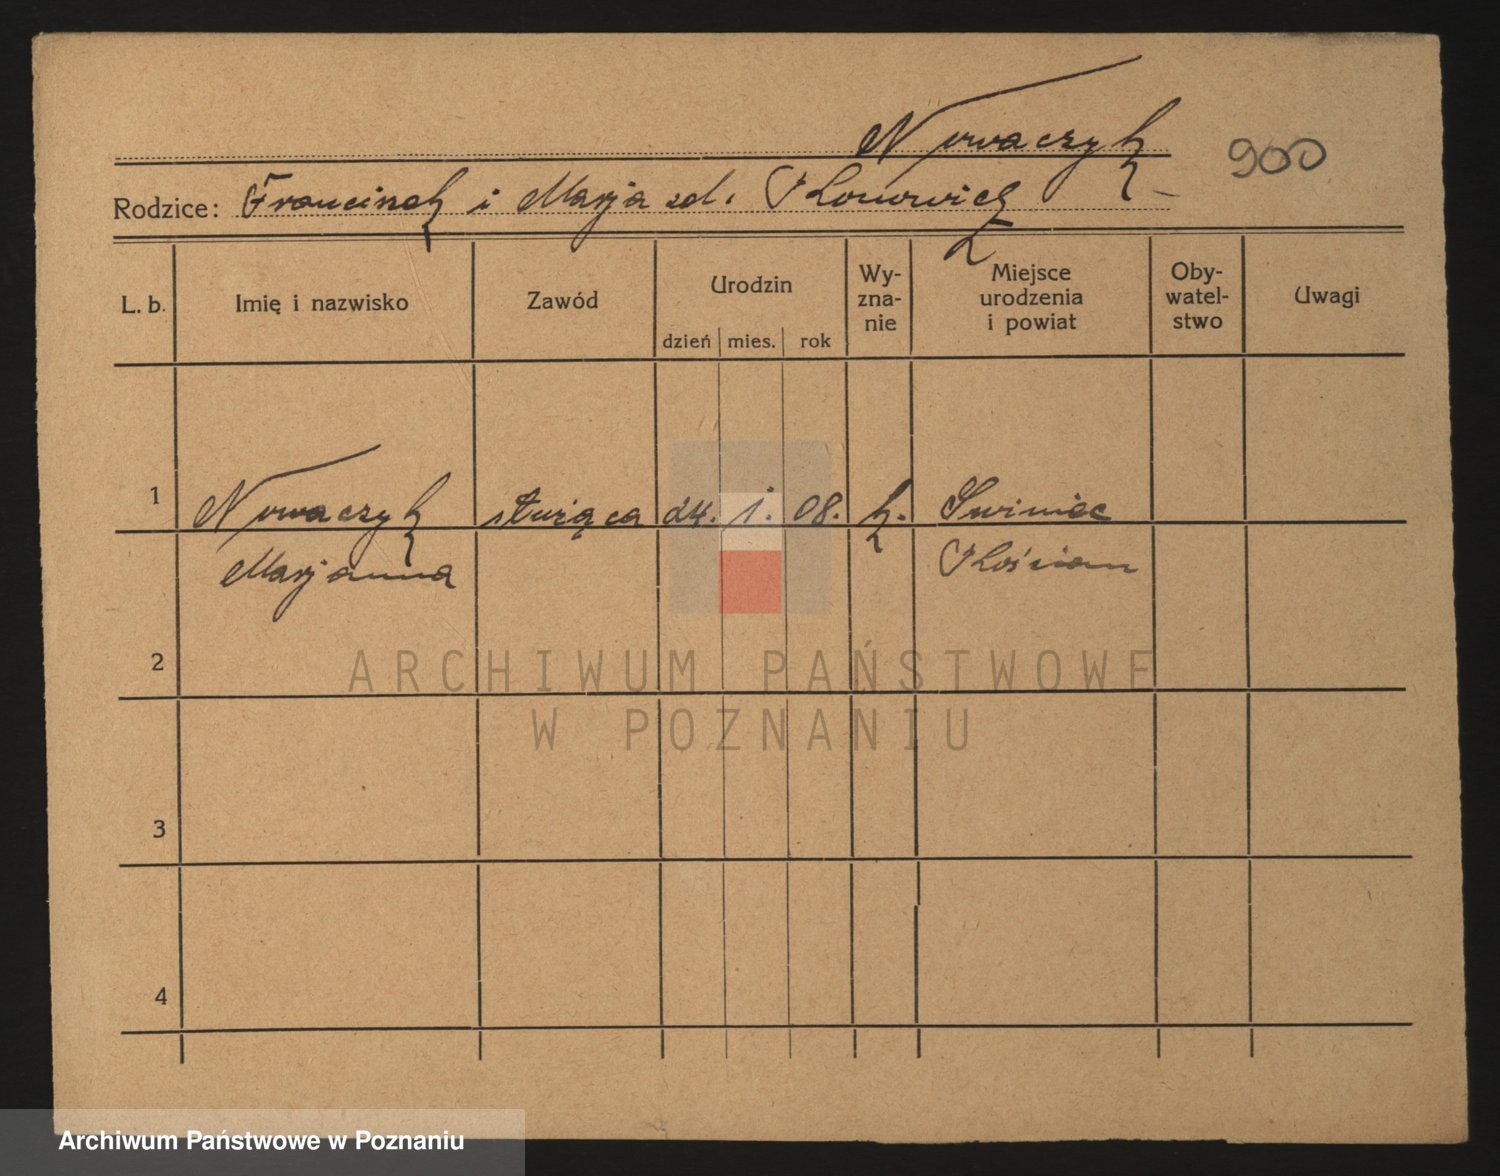 Nowaczyk
900
Rodzice: Franciszek i Marja zd.
L. b. Imię i nazwisko Zawód Urodzin Wy-zna-nie Miejsce urodzenia i powiat Oby-watel-stwo Uwagi
dzień mies. rok
1 Nowaczyk służąca 24. 1. 08. k. Świniec
Marjanna Kościan
2
ARCHIWUM PAŃSTWOWE
W POZNANIU
3
4
Archiwum Państwowe w Poznaniu